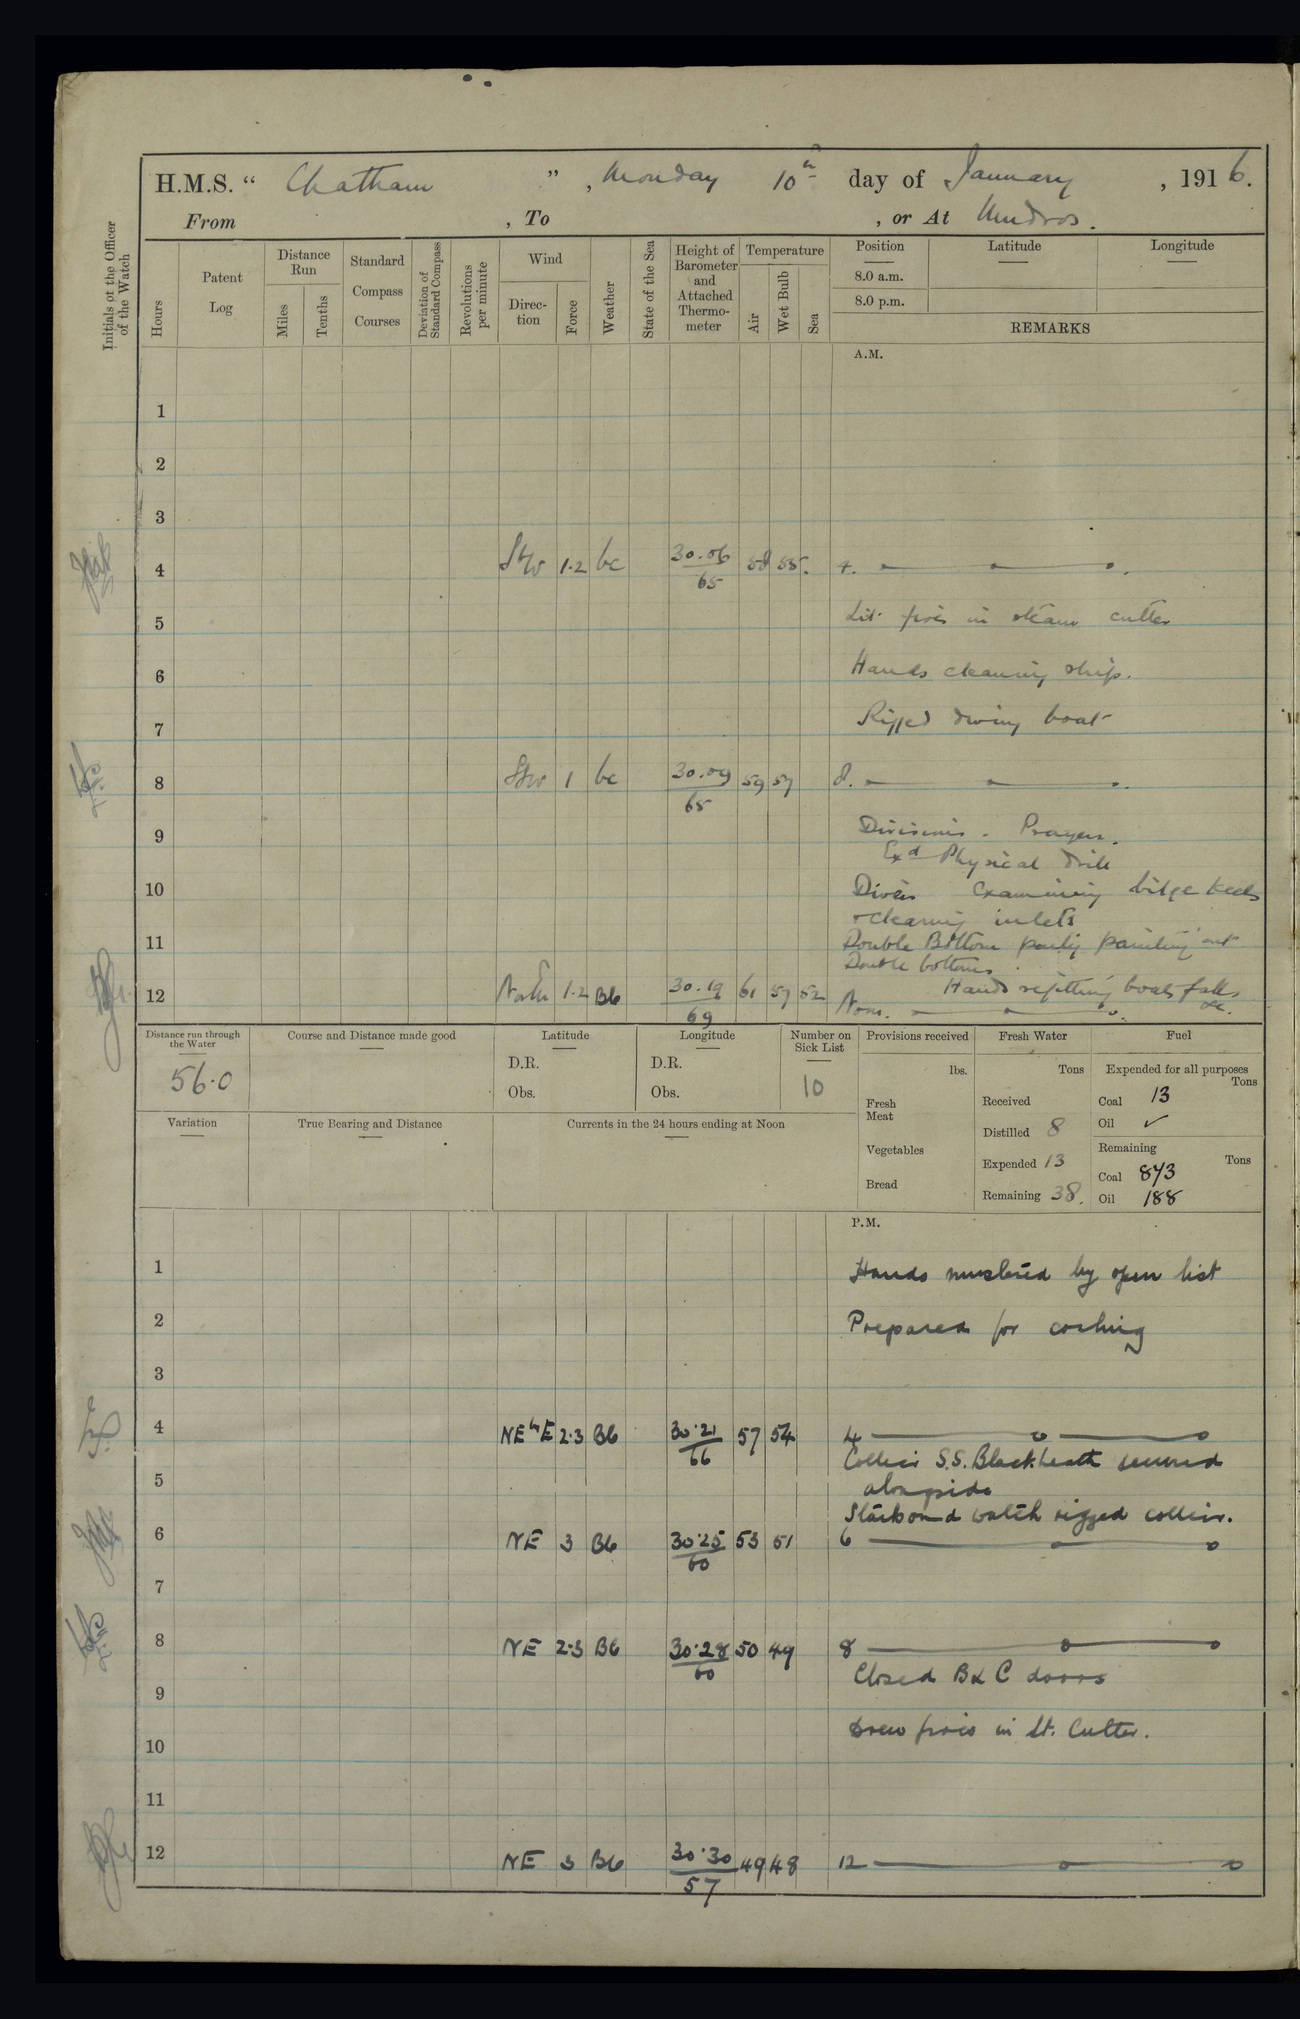 H.M.S. “ Chatham ” , Monday 10th day of January , 1916.
From , To , or At Mudros.
Initials of the Officer of the Watch
Hours
Patent Log
Distance Run
Miles
Tenths
Standard Compass Courses
Deviation of Standard Compass
Revolutions per minute
Wind
Direction
Force
Weather
State of the Sea
Height of Barometer and Attached Thermometer
Temperature
Air
Wet Bulb
Sea
Position
Latitude
Longitude
8.0 a.m.
8.0 p.m.
REMARKS
A.M.
1
2
3
4 1.2 bc 30.06 / 65 58 55. 4.
5 Lit fires in steam cutter
6 Hands cleaning ship.
7 Rigged diving boat
8 SSW 1 bc 30.09 / 65 59 57 8.
9 Divisions - Prayers.
Exd Physical drill
10 Divers examining bilge keels
& cleaning inlets
11 Double Bottom party painting out
Double bottoms
Hands refitting boats falls &c.
12 1.2 Bc 30.19 / 69 61 57 52 Noon.
Distance run through the Water
56.0
Course and Distance made good
Latitude
D.R.
Obs.
Longitude
D.R.
Obs.
Number on Sick List
10
Provisions received
lbs.
Fresh Meat
Vegetables
Bread
Fresh Water
Tons
Received
Distilled 8
Expended 13
Remaining 38.
Fuel
Expended for all purposes
Tons
Coal 13
Oil ✓
Remaining
Tons
Coal 873
Oil 188
Variation
True Bearing and Distance
Currents in the 24 hours ending at Noon
P.M.
1 Hands mustered by open list
2 Prepared for coaling
3
4 NEbyE 2.3 Bc 30.21 / 66 57 54 4
Collier S.S. Blackheath secured
5 alongside
Starboard watch rigged collier.
6 NE 3 Bc 30.25 / 60 53 51 6
7
8 NE 2.3 Bc 30.28 / 60 50 49 8
Closed B & C doors
9
10 Drew fires in St. Cutter.
11
12 NE 3 Bc 30.30 / 57 49 48 12